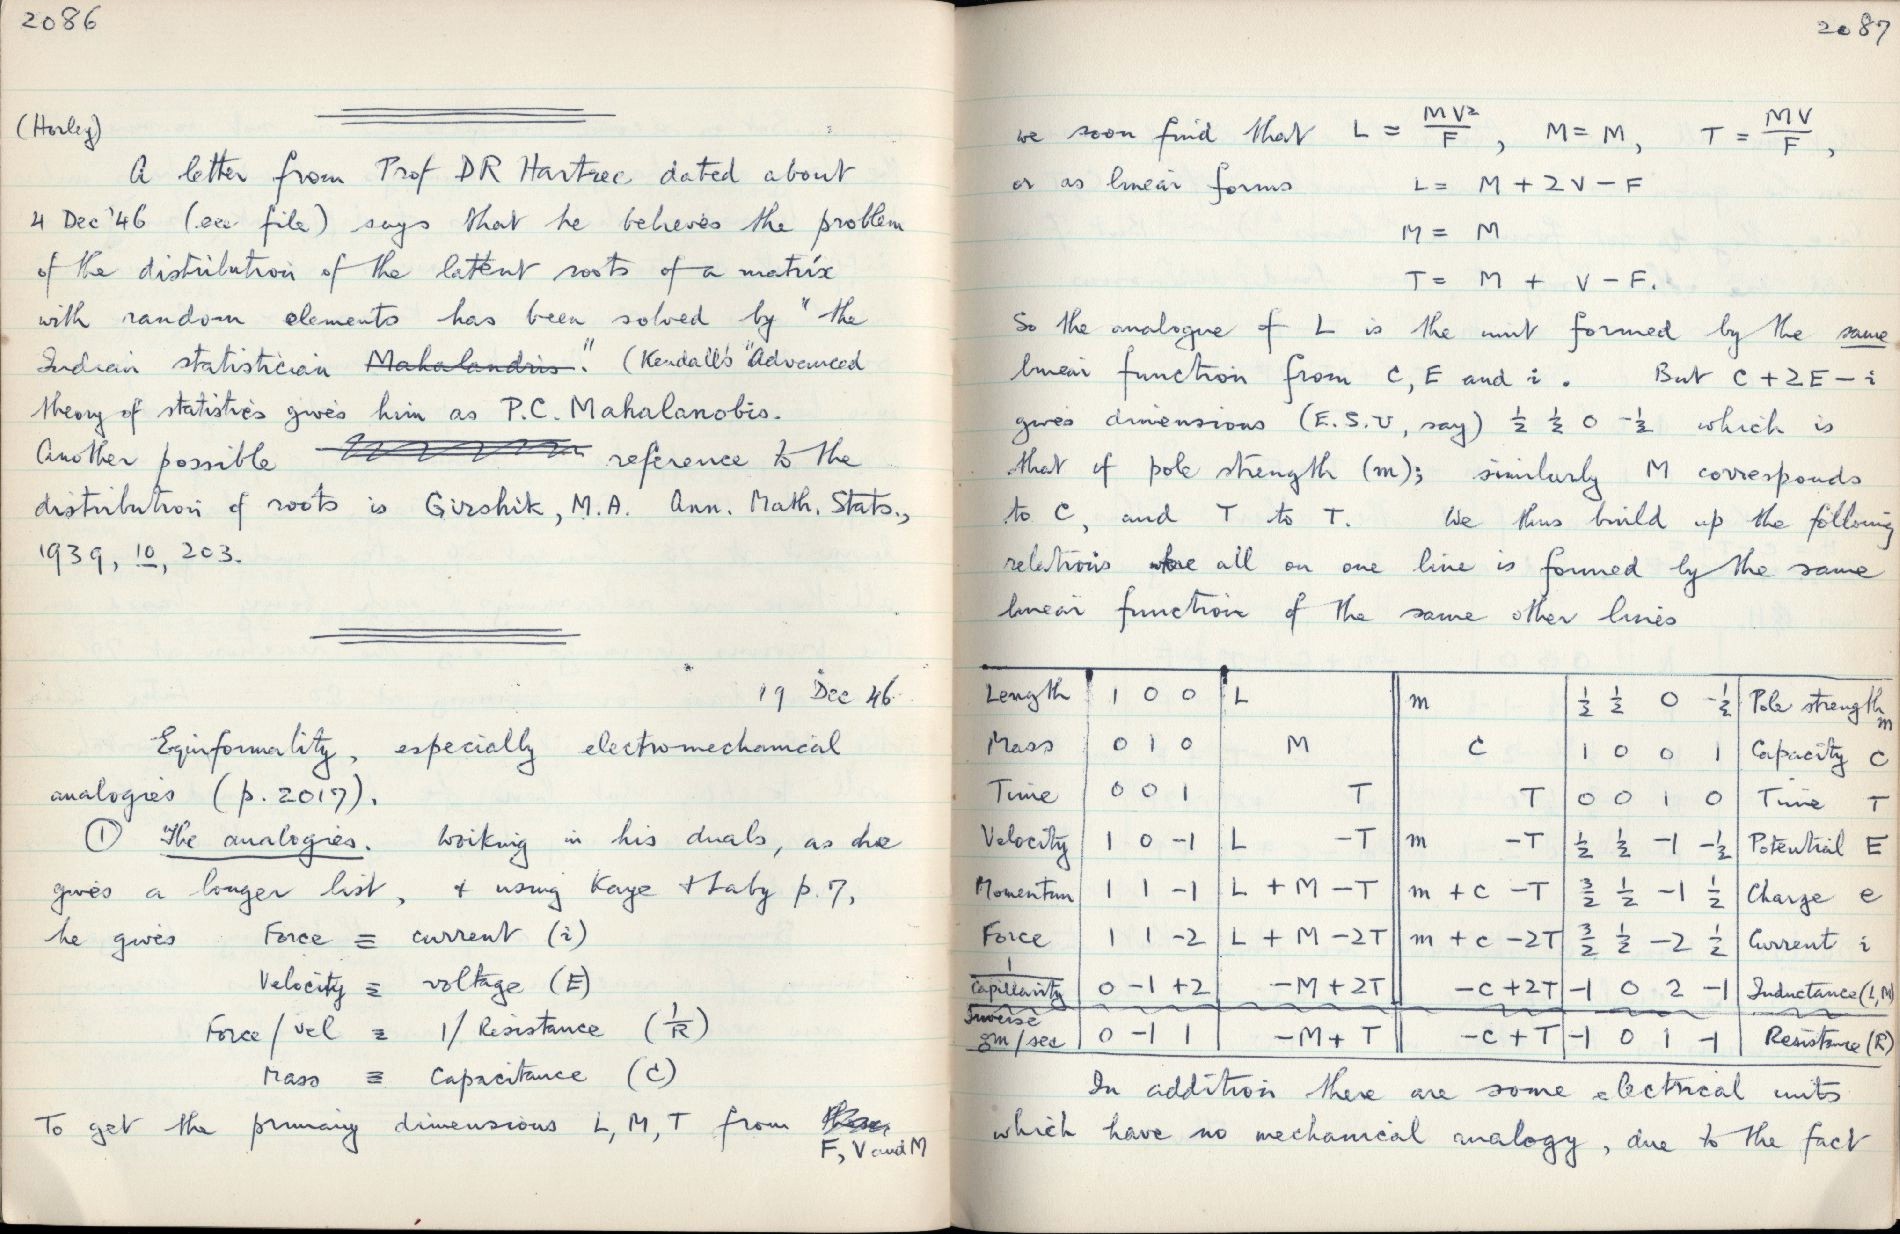 2086
(Horley)
A letter from Prof DR Hartree, dated about
4 Dec '46 (see file) says that he believes the problem
of the distribution of the latent roots of a matrix
with random elements has been solved by "the
Indian statistician Mahalandris." (Kendall's "Advanced
theory of statistics gives him as P.C. Mahalanobis.
Another possible reference to the
distribution of roots is Girshik, M.A. Ann. Math. Stats.,
1939, 10, 203.
19 Dec 46
Equiformality, especially electromechanical
analogies (p. 2017).
① The analogies. Working in his duals, as he
gives a longer list, & using Kaye & Laby p. 7,
he gives Force ≡ current (i)
Velocity ≡ voltage (E)
Force/vel ≡ 1/Resistance (1/R)
Mass ≡ Capacitance (C)
To get the primary dimensions L, M, T from
F, V and M
2087
we soon find that L = MV²/F, M = M, T = MV/F,
or as linear forms L = M + 2V − F
M = M
T = M + V − F.
So the analogue of L is the unit formed by the same
linear function from C, E and i. But C + 2E − i
gives dimensions (E.S.U, say) ½ ½ 0 -½ which is
that of pole strength (m); similarly M corresponds
to C, and T to T. We thus build up the following
relations all on one line is formed by the same
linear function of the same other lines
Length 1 0 0 L m ½ ½ 0 -½ Pole strength m
Mass 0 1 0 M C 1 0 0 1 Capacity C
Time 0 0 1 T T 0 0 1 0 Time T
Velocity 1 0 -1 L -T m -T ½ ½ -1 -½ Potential E
Momentum 1 1 -1 L + M - T m + c - T 3/2 ½ -1 ½ Charge e
Force 1 1 -2 L + M - 2T m + c - 2T 3/2 ½ -2 ½ Current i
1/Capillarity 0 -1 +2 -M + 2T -c + 2T -1 0 2 -1 Inductance (L,M)
Inverse gm/sec 0 -1 1 -M + T -c + T -1 0 1 -1 Resistance (R)
In addition there are some electrical units
which have no mechanical analogy, due to the fact